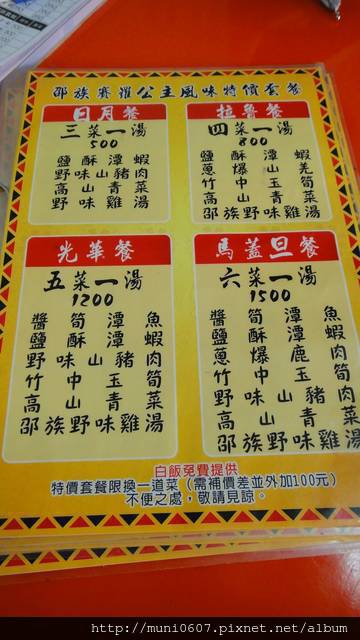 邵族賽公主風味特價套餐
日月餐
三菜一湯
500
鹽酥潭蝦
野味山豬肉
高山青菜
野味雞湯
拉魯餐
四菜一湯
800
鹽酥潭蝦
蔥爆山羌
竹中玉筍
高山青菜
邵族野味雞湯
光華餐
五菜一湯
1200
醬筍潭魚
鹽酥潭蝦
野味山豬肉
竹中玉筍
高山青菜
邵族野味雞湯
馬蓋旦餐
六菜一湯
1500
醬筍潭魚
鹽酥潭蝦
蔥爆鹿肉
竹中玉筍
野味山豬肉
高山青菜
邵族野味雞湯
白飯免費提供
特價套餐限換一道菜（需補價差並外加100元）
不便之處，敬請見諒。
http://muni0607.pixnet.net/album